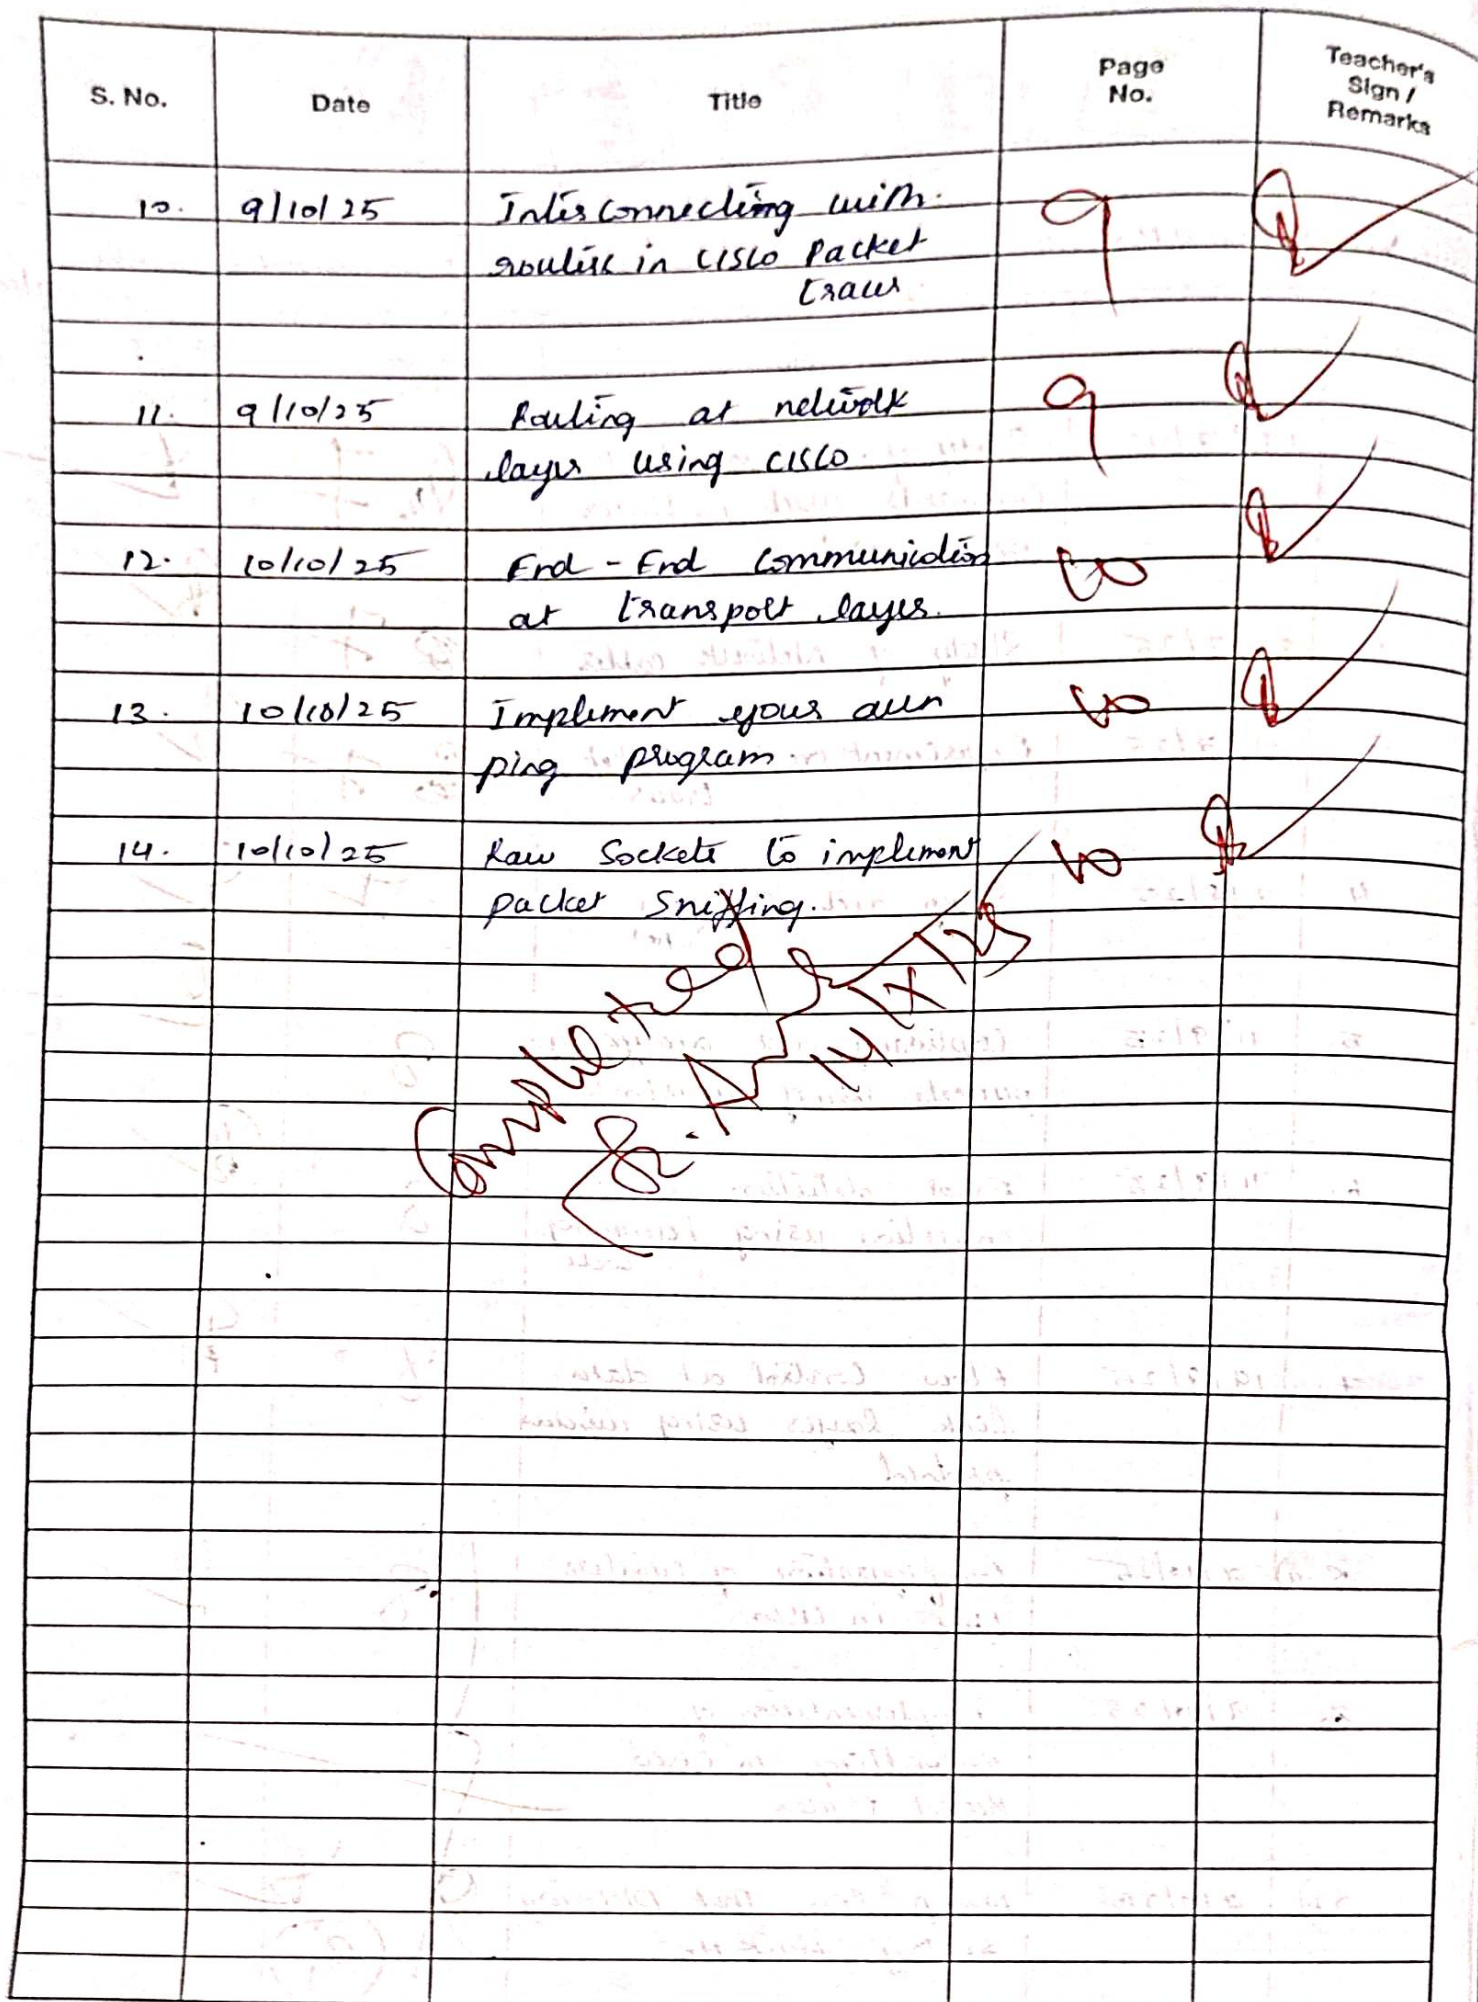 S. No. Date Title Page No. Teacher's Sign / Remarks
10. 9/10/25 Inter connecting with 9
routers in CISCO Packet
tracer
11. 9/10/25 Routing at network 9
layer using CISCO.
12. 10/10/25 End - End Communication 10
at transport layer.
13. 10/10/25 Implement your own 10
ping program.
14. 10/10/25 Raw Sockets to implement 10
packet Sniffing.
Completed
14/X/25